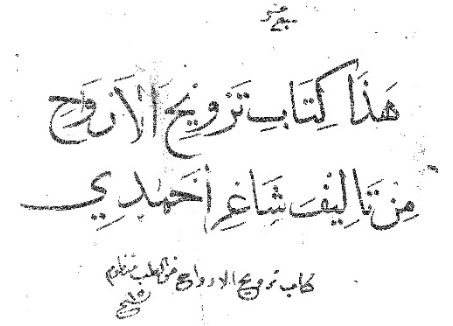 هَذَا كِتَابِ تَرْوِيحِ الاَرْوَاحِ
مِنْ تَالِيفَ شَاعِرِ اَحْمَدِي
كتاب ترويح الارواح الطب منظوم